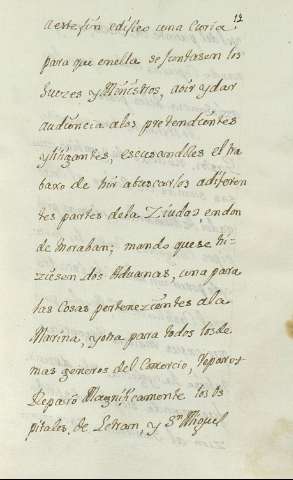 12
aeste fin edifico una Curia,
para que enella se juntasen los
Juezes y Ministros, aoir ydar
audiencia alos pretendientes
ylitigantes, escusandoles el tra
baxo de hir abuscarlos adiferen
tes partes dela Ziudad, endon
de moraban; mando quese hi-
ziesen dos Aduanas, una para
las Cosas pertenezientes ala
Marina, yotra para todos losde
mas generos del Comercio, reparo
Reparo Magnificamente los Os
pitales, de Letran, y Sn Miguel